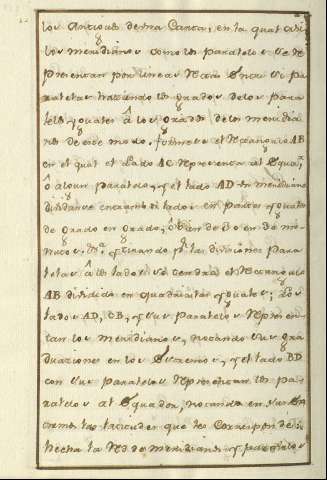 los Antiguos de una Carta, en la qual asi
los meridianos como los paralelos se re
presentan por lineas rectas entre si pa
ralelas haciendo los grados de los para
lelos yguales â los grados de los meridia
nos de este modo. formese el rectangulo AB
en el qual el lado AC represente al Equa.r
ô algun paralelo, y el lado AD un meridiano
dividanse entrambos lados en partes yguales
de grado en grado, ô bien de en mi
nutos. y tirando p.r las divisiones para
lelas â los lados se tendrá el rectangulo
AB dividido en quadraditos yguales; Los
lados AD, CB, y sus paralelos represen
tan los meridianos, notando sus gra
duaciones en los extremos, y el lado BD
con sus paralelos representan los pa
ralelos al Equador, notando en sus ex
tremos las latitudes que les corresponde
hecha la red de meridianos y paralelos